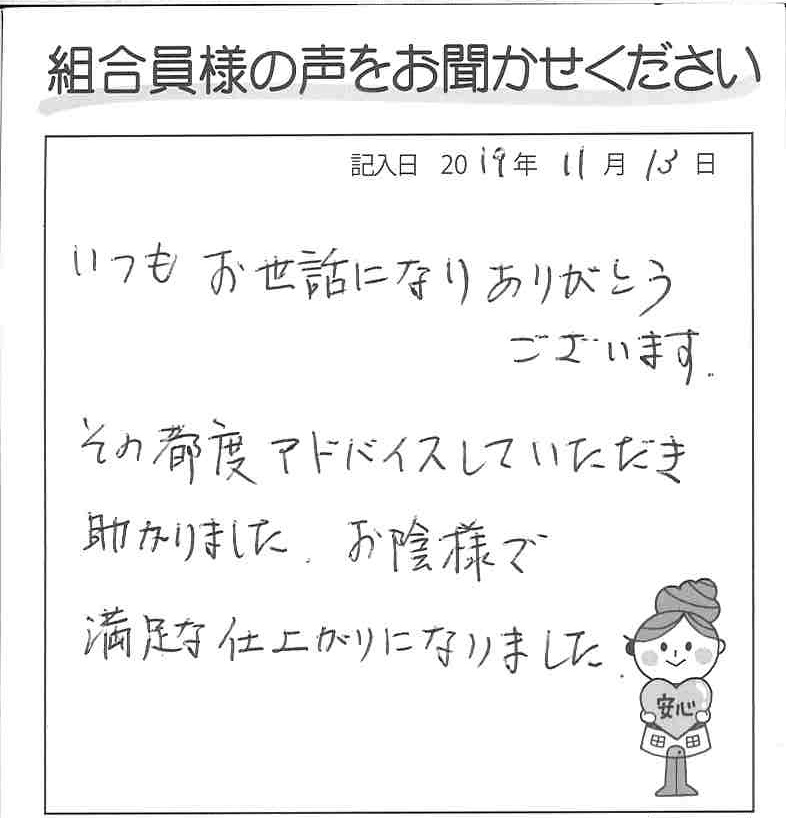 組合員様の声をお聞かせください
記入日 2019年 11月 13日
いつもお世話になりありがとう
ございます.
その都度アドバイスしていただき
助かりました. お陰様で
満足な仕上がりになりました.
安心